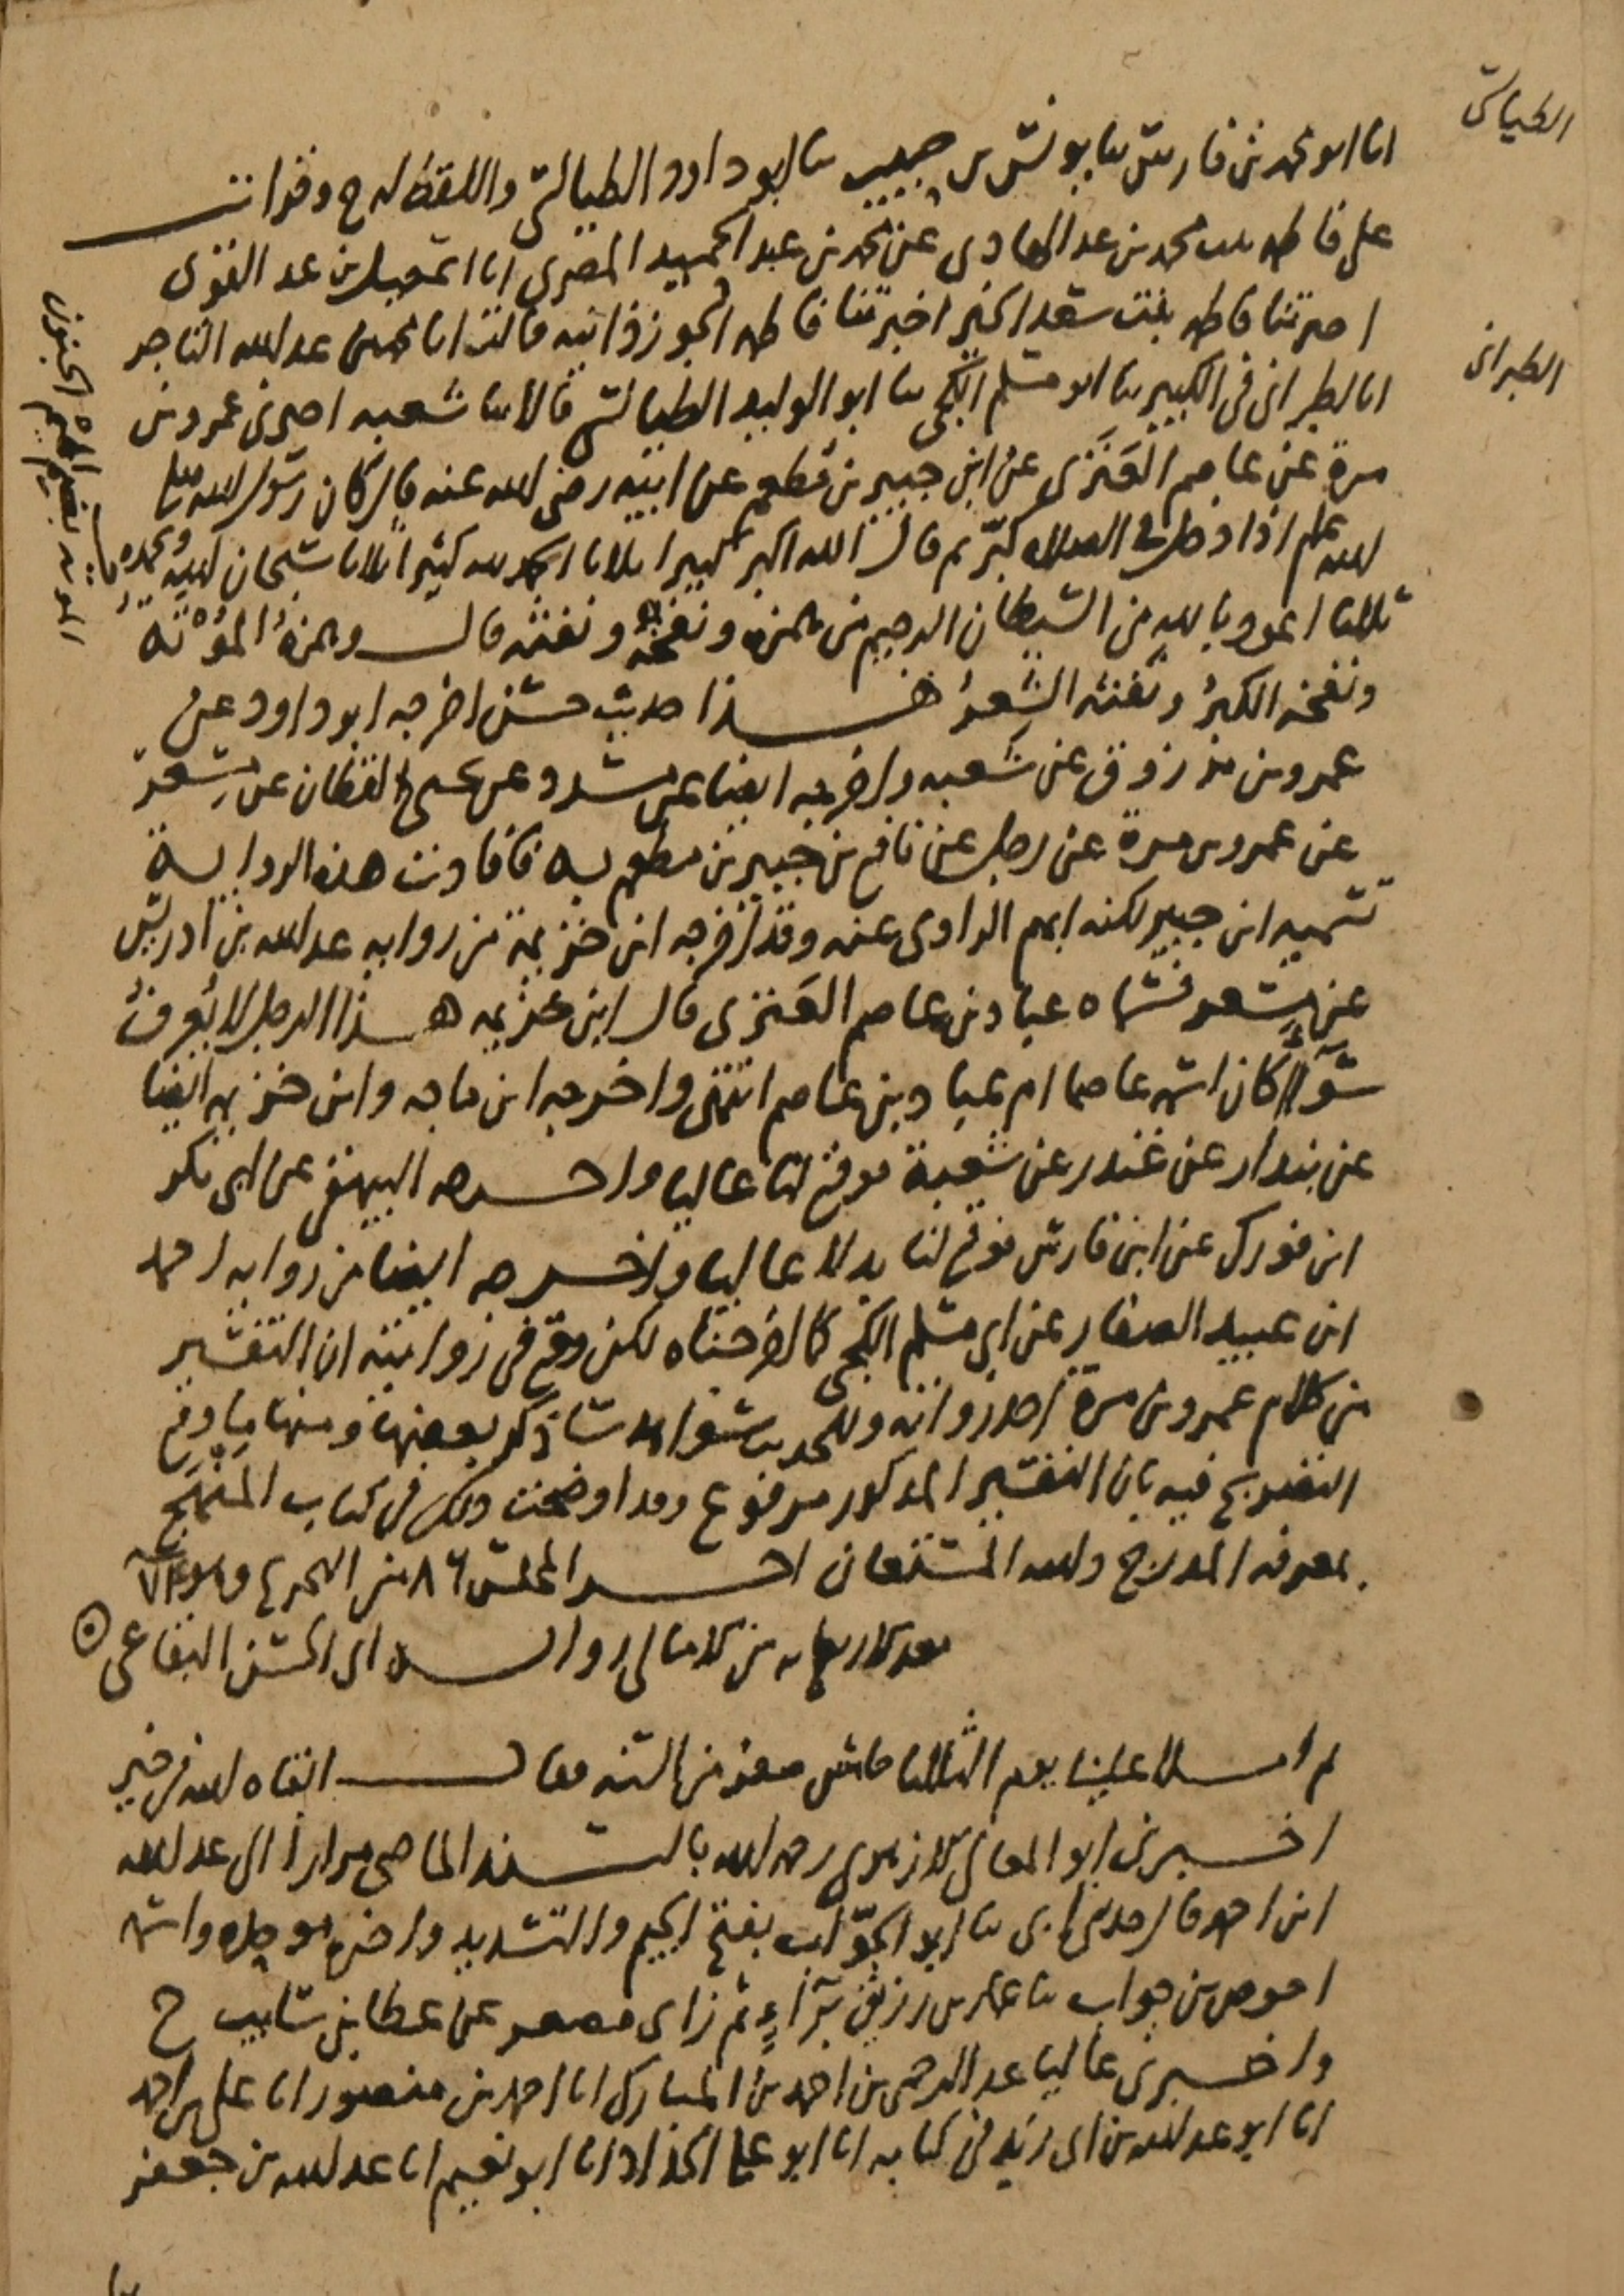 الطيالسي
انا ابو محمد بن فارس ثنا يونس بن حبيب ثنا ابو داود الطيالسي واللفظ له ح وقرات
على فاطمه بنت محمد بن عبد الهادي عن محمد بن عبد الحميد المصري انا اسمعيل بن عبد القوي
اخبرتنا فاطمه بنت سعد الخير اخبرتنا فاطمه الجوزذانيه قالت انا محمد بن عبد الله التاجر
الطبراني
انا الطبراني في الكبير ثنا ابو مسلم الكجي ثنا ابو الوليد الطيالسي قالا ثنا شعبه اخبرني عمرو بن
مرة عن عاصم العَنَزي عن ابن جبير بن مطعم عن ابيه رضي الله عنه قال كان رسول الله صلى
الله علم اذا دخل في الصلاه كبّر ثم قال الله اكبر كبيرا ثلاثا الحمد لله كثيرا ثلاثا سبحان الله وبحمده
ثلاثا اعوذ بالله من الشيطان الرجيم من همزه ونفخه ونفثه قال وهمزهُ المُوْتَة
الموته بضم الميم الجنون
ونفخه الكبرُ ونفثه الشِعرُ هذا حديث حسن اخرجه ابو داود عن
عمرو بن مرزوق عن شعبه واخرجه ايضا عن مسدد عن يحيى القطان عن مِسْعر
عن عمرو بن مرة عن رجل عن نافع بن جبير بن مطعم به فافادت هذه الروايه
تسميه ابن جبير لكنه ابهم الراوي عنه وقد اخرجه ابن خزيمة من روايه عبد الله بن ادريس
عن مسعر فسماه عباد بن عاصم العَنزي قال ابن خزيمه هذا الرجل لا يُعرفُ
سَوآءٌ كان اسمه عاصما ام عباد بن عاصم انتهى واخرجه ابن ماجه وابن خزيمه ايضا
عن بندار عن غندر عن شعبة فوقع لنا عاليا واخرجه البيهقي عن ابي بكر
ابن فورك عن ابن فارس فوقع لنا بدلا عاليا واخرجه ايضا من روايه احمد
ابن عبيد الصفار عن ابي مسلم الكجي كما اخرجناه لكن وقع في روايته ان التفسير
من كلام عمرو بن مرة احد رواته وللحديث شواهد سأذكر بعضها ومنها ما وقع
التصريح فيه بان التفسير المذكور مرفوع وقد اوضحت ذلك في كتاب المَنْهَج
بمعرفه المدرج والله المستعان اخر المجلس ٨٦ من التخريج وهو
بعد الاربعمايه من الامالي روايه ابي الحسن البقاعي
ثم املا علينا يوم الثلاثا صفر من السنه فقال ابقاه الله في خير
اخبرني ابو المعالي الازهري رحمه الله بالسند الماضي مرارا الى عبد الله
ابن احمد قال حدثني ابي ثنا ابو الجوَّاب بفتح الجيم والتشديد واخره موحده واسمه
احوص بن جواب ثنا عمار بن رزيق برَآءٍ ثم زاي مصغر عن عطا بن سايب ح
واخبرني عاليا عبد الرحمن بن احمد بن المبارك انا احمد بن منصور انا علي بن احمد
انا ابو عبد الله بن ابي زيد في كتابه انا ابو علي الحداد انا ابو نعيم انا عبد الله بن جعفر